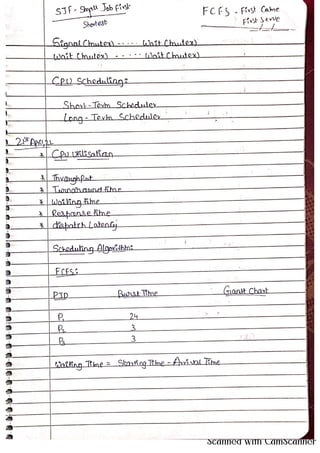 SJF - Small Job First
Shortest
FCFS - First Come
First Serve
Signal (mutex) ..... Wait (mutex)
Wait (mutex) ..... Wait (mutex)
CPU Scheduling:
Short-Term Scheduler
Long-Term Scheduler
* CPU Utilisation
* Throughput
* Turnaround time
* Waiting time
* Response time
* dispatch Latency
Scheduling Algorithm:
FCFS:
PID Burst Time Giantt Chart
P1 24
P2 3
P3 3
Waiting Time = Starting Time - Arrival Time
Scanned with CamScanner